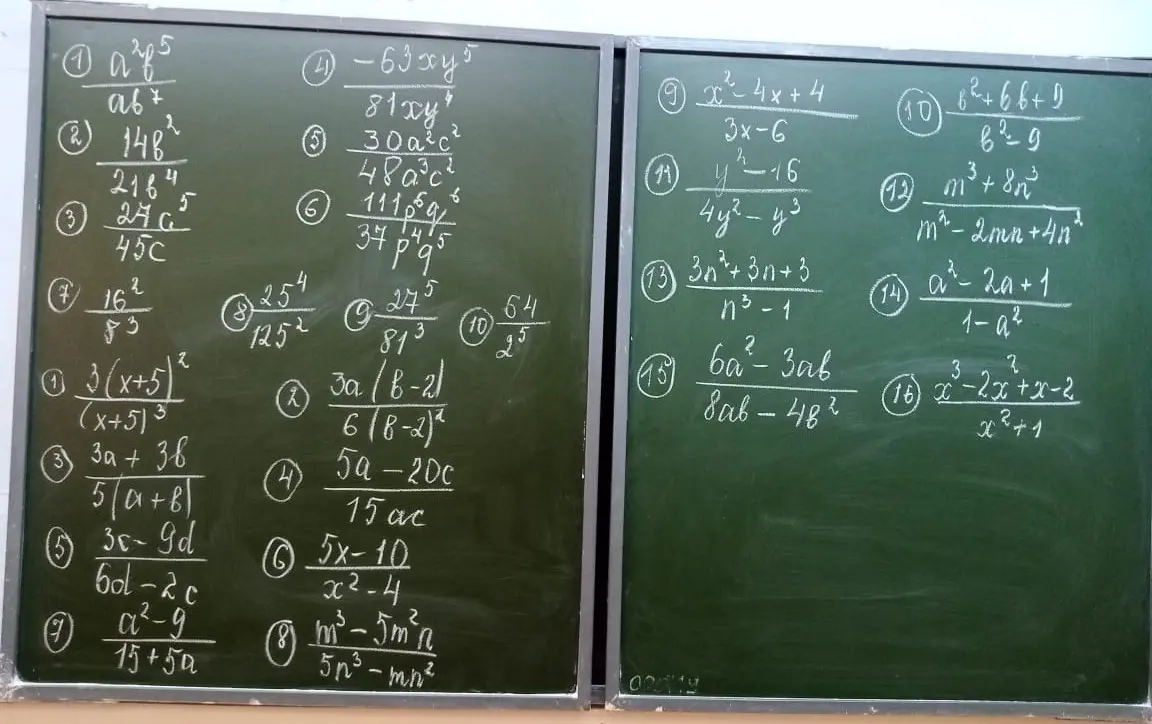 ① a²b⁵/ab⁷ ④ -63xy⁵/81xy⁴
② 14b²/21b⁴ ⑤ 30a²c²/48a³c²
③ 27c⁵/45c ⑥ 111p⁶q⁶/37p⁴q⁵
⑦ 16²/8³ ⑧ 25⁴/125² ⑨ 27⁵/81³ ⑩ 64/2⁵
① 3(x+5)²/(x+5)³ ② 3a(b-2)/6(b-2)²
③ 3a+3b/5(a+b) ④ 5a-20c/15ac
⑤ 3c-9d/6d-2c ⑥ 5x-10/x²-4
⑦ a²-9/15+5a ⑧ m³-5m²n/5n³-mn²
⑨ x²-4x+4/3x-6 ⑩ b²+6b+9/b²-9
⑪ y²-16/4y²-y³ ⑫ m³+8n³/m²-2mn+4n²
⑬ 3n²+3n+3/n³-1 ⑭ a²-2a+1/1-a²
⑮ 6a²-3ab/8ab-4b² ⑯ x³-2x²+x-2/x²+1